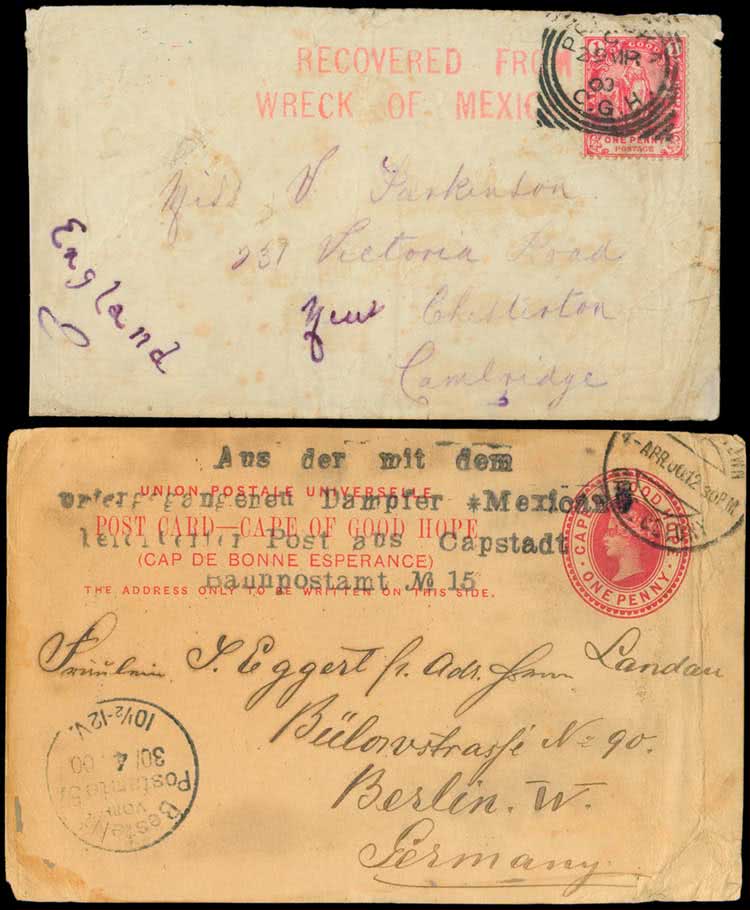 RECOVERED FROM
WRECK OF MEXIC
29 MR
00
C.G.H
GOOD
ONE PENNY
POSTAGE
Miss V Parkinson
237 Victoria Road
New Chesterton
Cambridge
England
Aus der mit dem
untergangenen Dampfer *Mexican
Post aus Capstadt
Bahnpostamt № 15
UNION POSTALE UNIVERSELLE
POST CARD—CAPE OF GOOD HOPE
(CAP DE BONNE ESPERANCE)
THE ADDRESS ONLY TO BE WRITTEN ON THIS SIDE.
APR.00.12.30P.M.
CAPE OF GOOD HOPE
ONE PENNY
Fräulein J. Eggert p. Adr. Herrn Landau
Bülowstrasse No 90.
Berlin. W.
Germany
Bestellt
vom
Postamte 57
30/4 00
10½-12V.